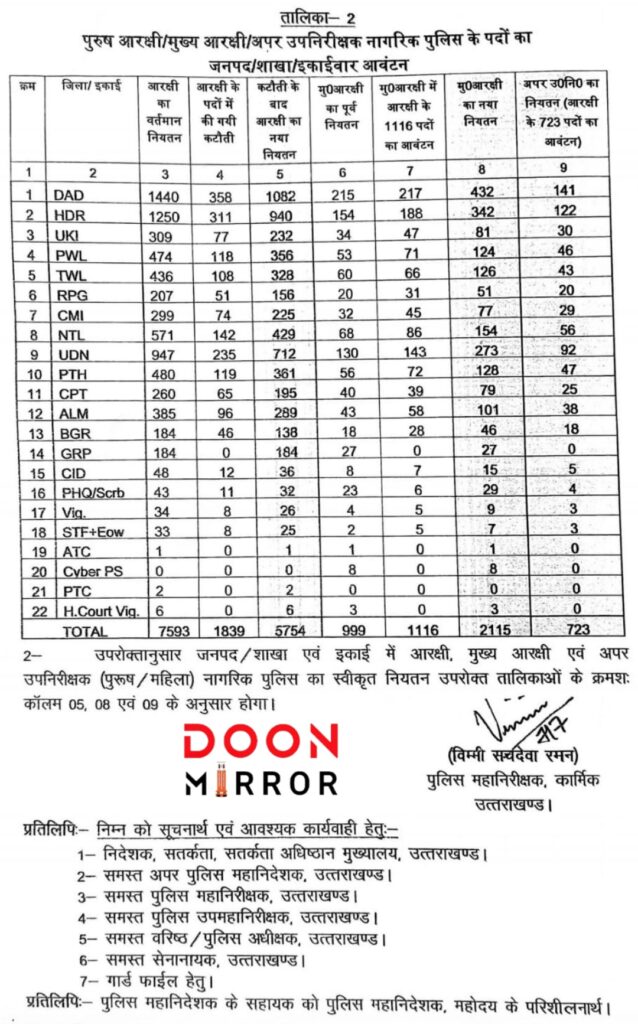 तालिका– 2
पुरुष आरक्षी/मुख्य आरक्षी/अपर उपनिरीक्षक नागरिक पुलिस के पदों का
जनपद/शाखा/इकाईवार आवंटन
क्रम | जिला/ इकाई | आरक्षी का वर्तमान नियतन | आरक्षी के पदों में की गयी कटौती | कटौती के बाद आरक्षी का नया नियतन | मु0आरक्षी का पूर्व नियतन | मु0आरक्षी में आरक्षी के 1116 पदों का आवंटन | मु0आरक्षी का नया नियतन | अपर उ0नि0 का नियतन (आरक्षी के 723 पदों का आवंटन)
1 | 2 | 3 | 4 | 5 | 6 | 7 | 8 | 9
1 | DAD | 1440 | 358 | 1082 | 215 | 217 | 432 | 141
2 | HDR | 1250 | 311 | 940 | 154 | 188 | 342 | 122
3 | UKI | 309 | 77 | 232 | 34 | 47 | 81 | 30
4 | PWL | 474 | 118 | 356 | 53 | 71 | 124 | 46
5 | TWL | 436 | 108 | 328 | 60 | 66 | 126 | 43
6 | RPG | 207 | 51 | 156 | 20 | 31 | 51 | 20
7 | CMI | 299 | 74 | 225 | 32 | 45 | 77 | 29
8 | NTL | 571 | 142 | 429 | 68 | 86 | 154 | 56
9 | UDN | 947 | 235 | 712 | 130 | 143 | 273 | 92
10 | PTH | 480 | 119 | 361 | 56 | 72 | 128 | 47
11 | CPT | 260 | 65 | 195 | 40 | 39 | 79 | 25
12 | ALM | 385 | 96 | 289 | 43 | 58 | 101 | 38
13 | BGR | 184 | 46 | 138 | 18 | 28 | 46 | 18
14 | GRP | 184 | 0 | 184 | 27 | 0 | 27 | 0
15 | CID | 48 | 12 | 36 | 8 | 7 | 15 | 5
16 | PHQ/Scrb | 43 | 11 | 32 | 23 | 6 | 29 | 4
17 | Vig. | 34 | 8 | 26 | 4 | 5 | 9 | 3
18 | STF+Eow | 33 | 8 | 25 | 2 | 5 | 7 | 3
19 | ATC | 1 | 0 | 1 | 1 | 0 | 1 | 0
20 | Cyber PS | 0 | 0 | 0 | 8 | 0 | 8 | 0
21 | PTC | 2 | 0 | 2 | 0 | 0 | 0 | 0
22 | H.Court Vig. | 6 | 0 | 6 | 3 | 0 | 3 | 0
TOTAL | 7593 | 1839 | 5754 | 999 | 1116 | 2115 | 723
2– उपरोक्तानुसार जनपद/शाखा एवं इकाई में आरक्षी, मुख्य आरक्षी एवं अपर
उपनिरीक्षक (पुरूष/महिला) नागरिक पुलिस का स्वीकृत नियतन उपरोक्त तालिकाओं के क्रमशः
कॉलम 05, 08 एवं 09 के अनुसार होगा।
DOON
MIRROR
(विम्मी सचदेवा रमन)
पुलिस महानिरीक्षक, कार्मिक
उत्तराखण्ड।
प्रतिलिपिः– निम्न को सूचनार्थ एवं आवश्यक कार्यवाही हेतुः–
1– निदेशक, सतर्कता, सतर्कता अधिष्ठान मुख्यालय, उत्तराखण्ड।
2– समस्त अपर पुलिस महानिदेशक, उत्तराखण्ड।
3– समस्त पुलिस महानिरीक्षक, उत्तराखण्ड।
4– समस्त पुलिस उपमहानिरीक्षक, उत्तराखण्ड।
5– समस्त वरिष्ठ/पुलिस अधीक्षक, उत्तराखण्ड।
6– समस्त सेनानायक, उत्तराखण्ड।
7– गार्ड फाईल हेतु।
प्रतिलिपिः– पुलिस महानिदेशक के सहायक को पुलिस महानिदेशक, महोदय के परिशीलनार्थ।